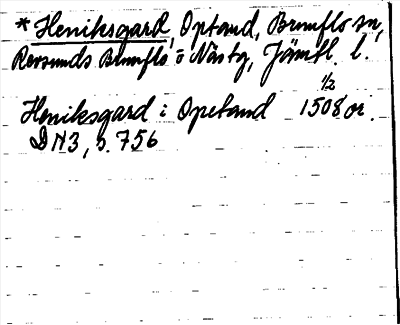 * Heniksgard, Optand, Brunflo sn,
Revsunds Brunflo o Näs tg, Jämtl. l.
Heniksgard i Opetand 1508 1/2 or.
DN3, s. 756